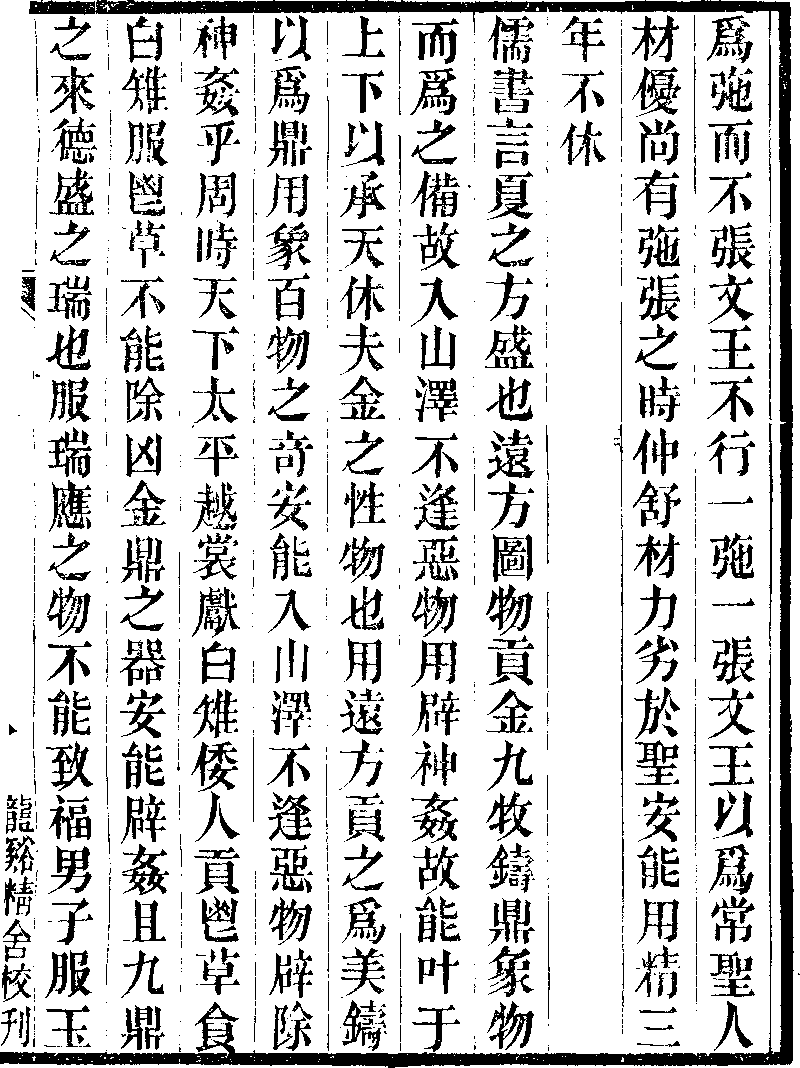 爲弛而不張文王不行一弛一張文王以爲常聖人
材優尚有弛張之時仲舒材力劣於聖安能用精三
年不休
儒書言夏之方盛也遠方圖物貢金九牧鑄鼎象物
而爲之備故入山澤不逢惡物用辟神姦故能叶于
上下以承天休夫金之性物也用遠方貢之爲美鑄
以爲鼎用象百物之奇安能入山澤不逢惡物辟除
神姦乎周時天下太平越裳獻白雉倭人貢鬯草食
白雉服鬯草不能除凶金鼎之器安能辟姦且九鼎
之來德盛之瑞也服瑞應之物不能致福男子服玉
龍谿精舍校刊